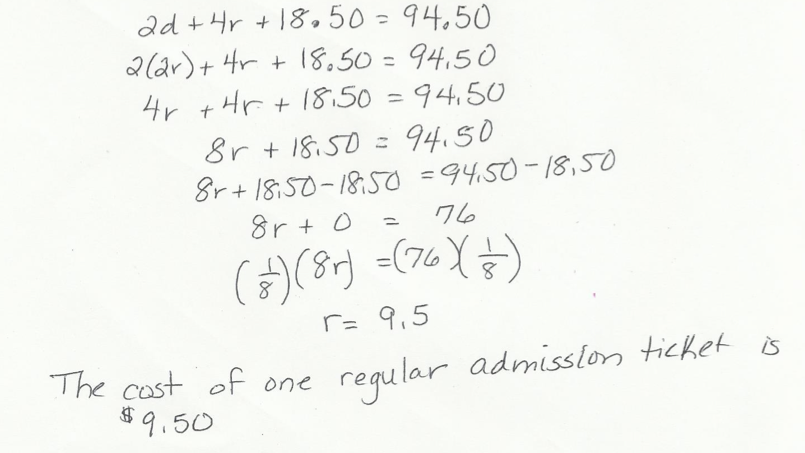 2d + 4r + 18.50 = 94.50
2(2r) + 4r + 18.50 = 94.50
4r + 4r + 18.50 = 94.50
8r + 18.50 = 94.50
8r + 18.50 - 18.50 = 94.50 - 18.50
8r + 0 = 76
(1/8)(8r) = (76)(1/8)
r = 9.5
The cost of one regular admission ticket is
$9.50